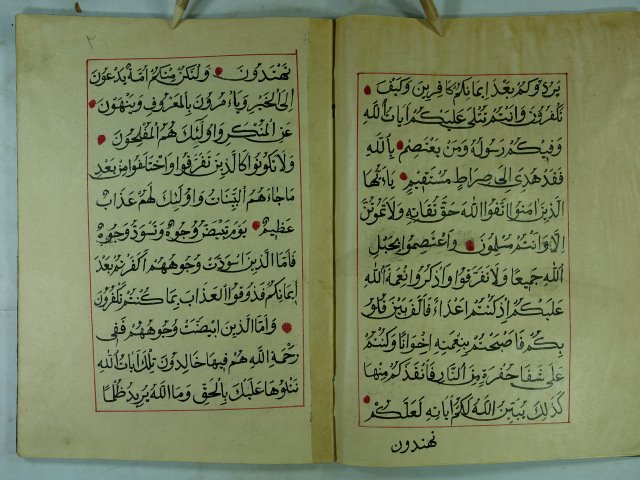 يردوكم بعد ايمانكم كافرين وكيف
تكفرون وانتم تتلى عليكم ايات الله
وفيكم رسوله ومن يعتصم بالله
فقد هدى الى صراط مستقيم ياءيها
الذين امنوا اتقوا الله حق تقاته ولا تموتن
الا وانتم مسلمون واعتصموا بحبل
الله جميعا ولا تفرقوا واذكروا نعمة الله
عليكم اذ كنتم اعداء فالف بين قلو
بكم فاصبحتم بنعمته اخوانا وكنتم
على شفا حفرة من النار فانقذكم منها
كذلك يبين الله لكم اياته لعلكم
تهتدون
٢
تهتدون ولتكن منكم امة يدعون
الى الخير وياءمرون بالمعروف وينهون
عن المنكر واولئك هم المفلحون
ولا تكونوا كالذين تفرقوا واختلفوا من بعد
ما جاءهم البينات واولئك لهم عذاب
عظيم يوم تبيض وجوه وتسود وجوه
فاما الذين اسودت وجوههم اكفرتم بعد
ايمانكم فذوقوا العذاب بما كنتم تكفرون
واما الذين ابيضت وجوههم ففي
رحمة الله هم فيها خالدون تلك ايات الله
نتلوها عليك بالحق وما الله يريد ظلما